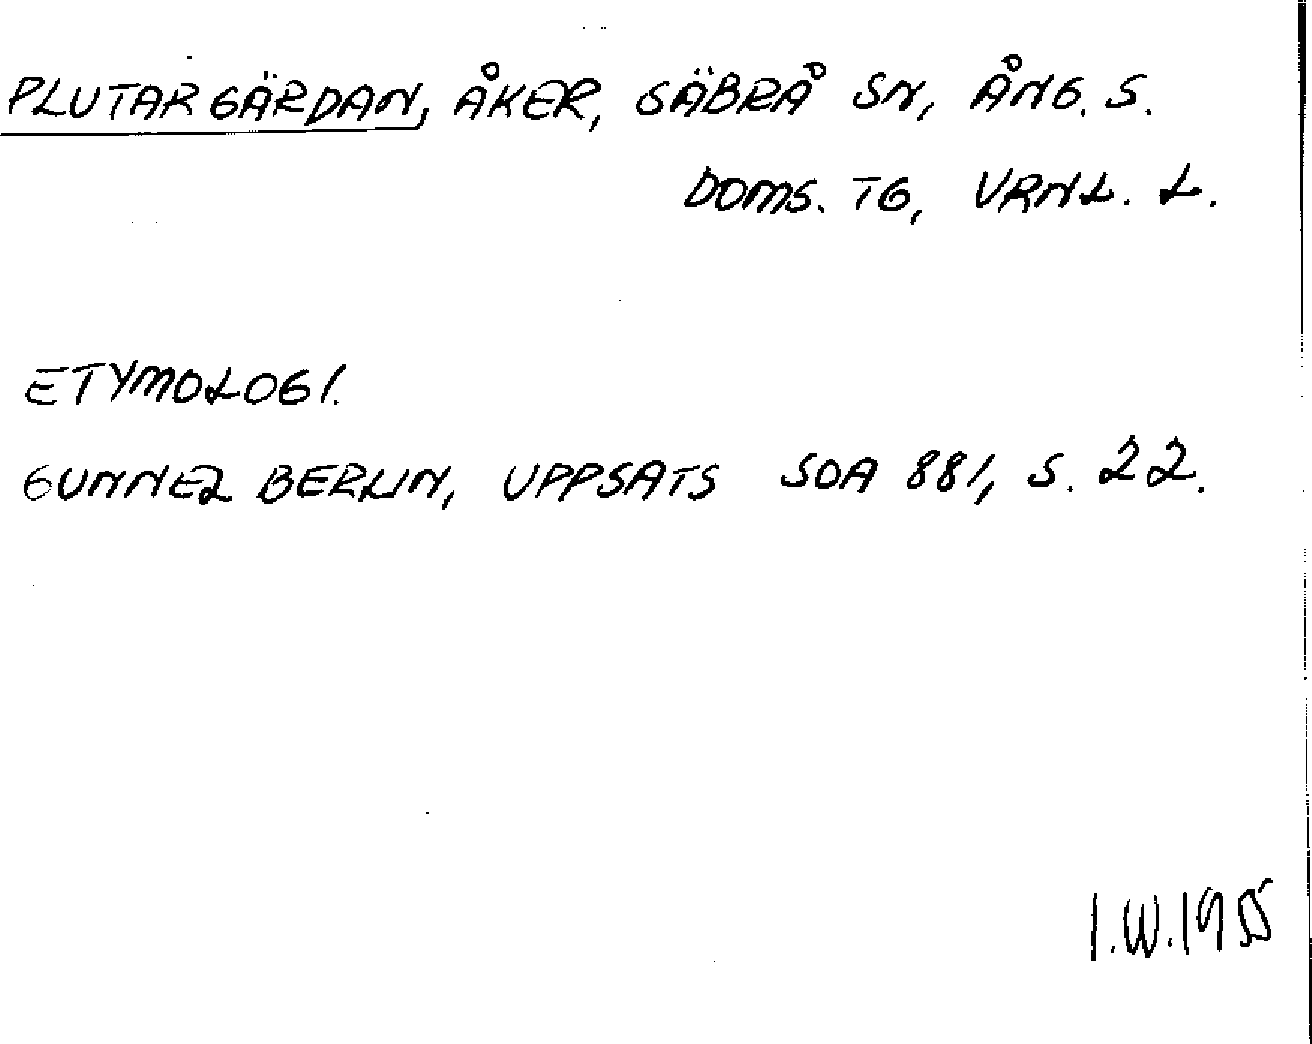 PLUTARGÄRDAN, ÅKER, SÄBRÅ SN, ÅNG. S.
DOMS. TG, VRNL. L.
ETYMOLOGI.
GUNNEL BERLIN, UPPSATS SOA 881, S. 22.
I.W.1955